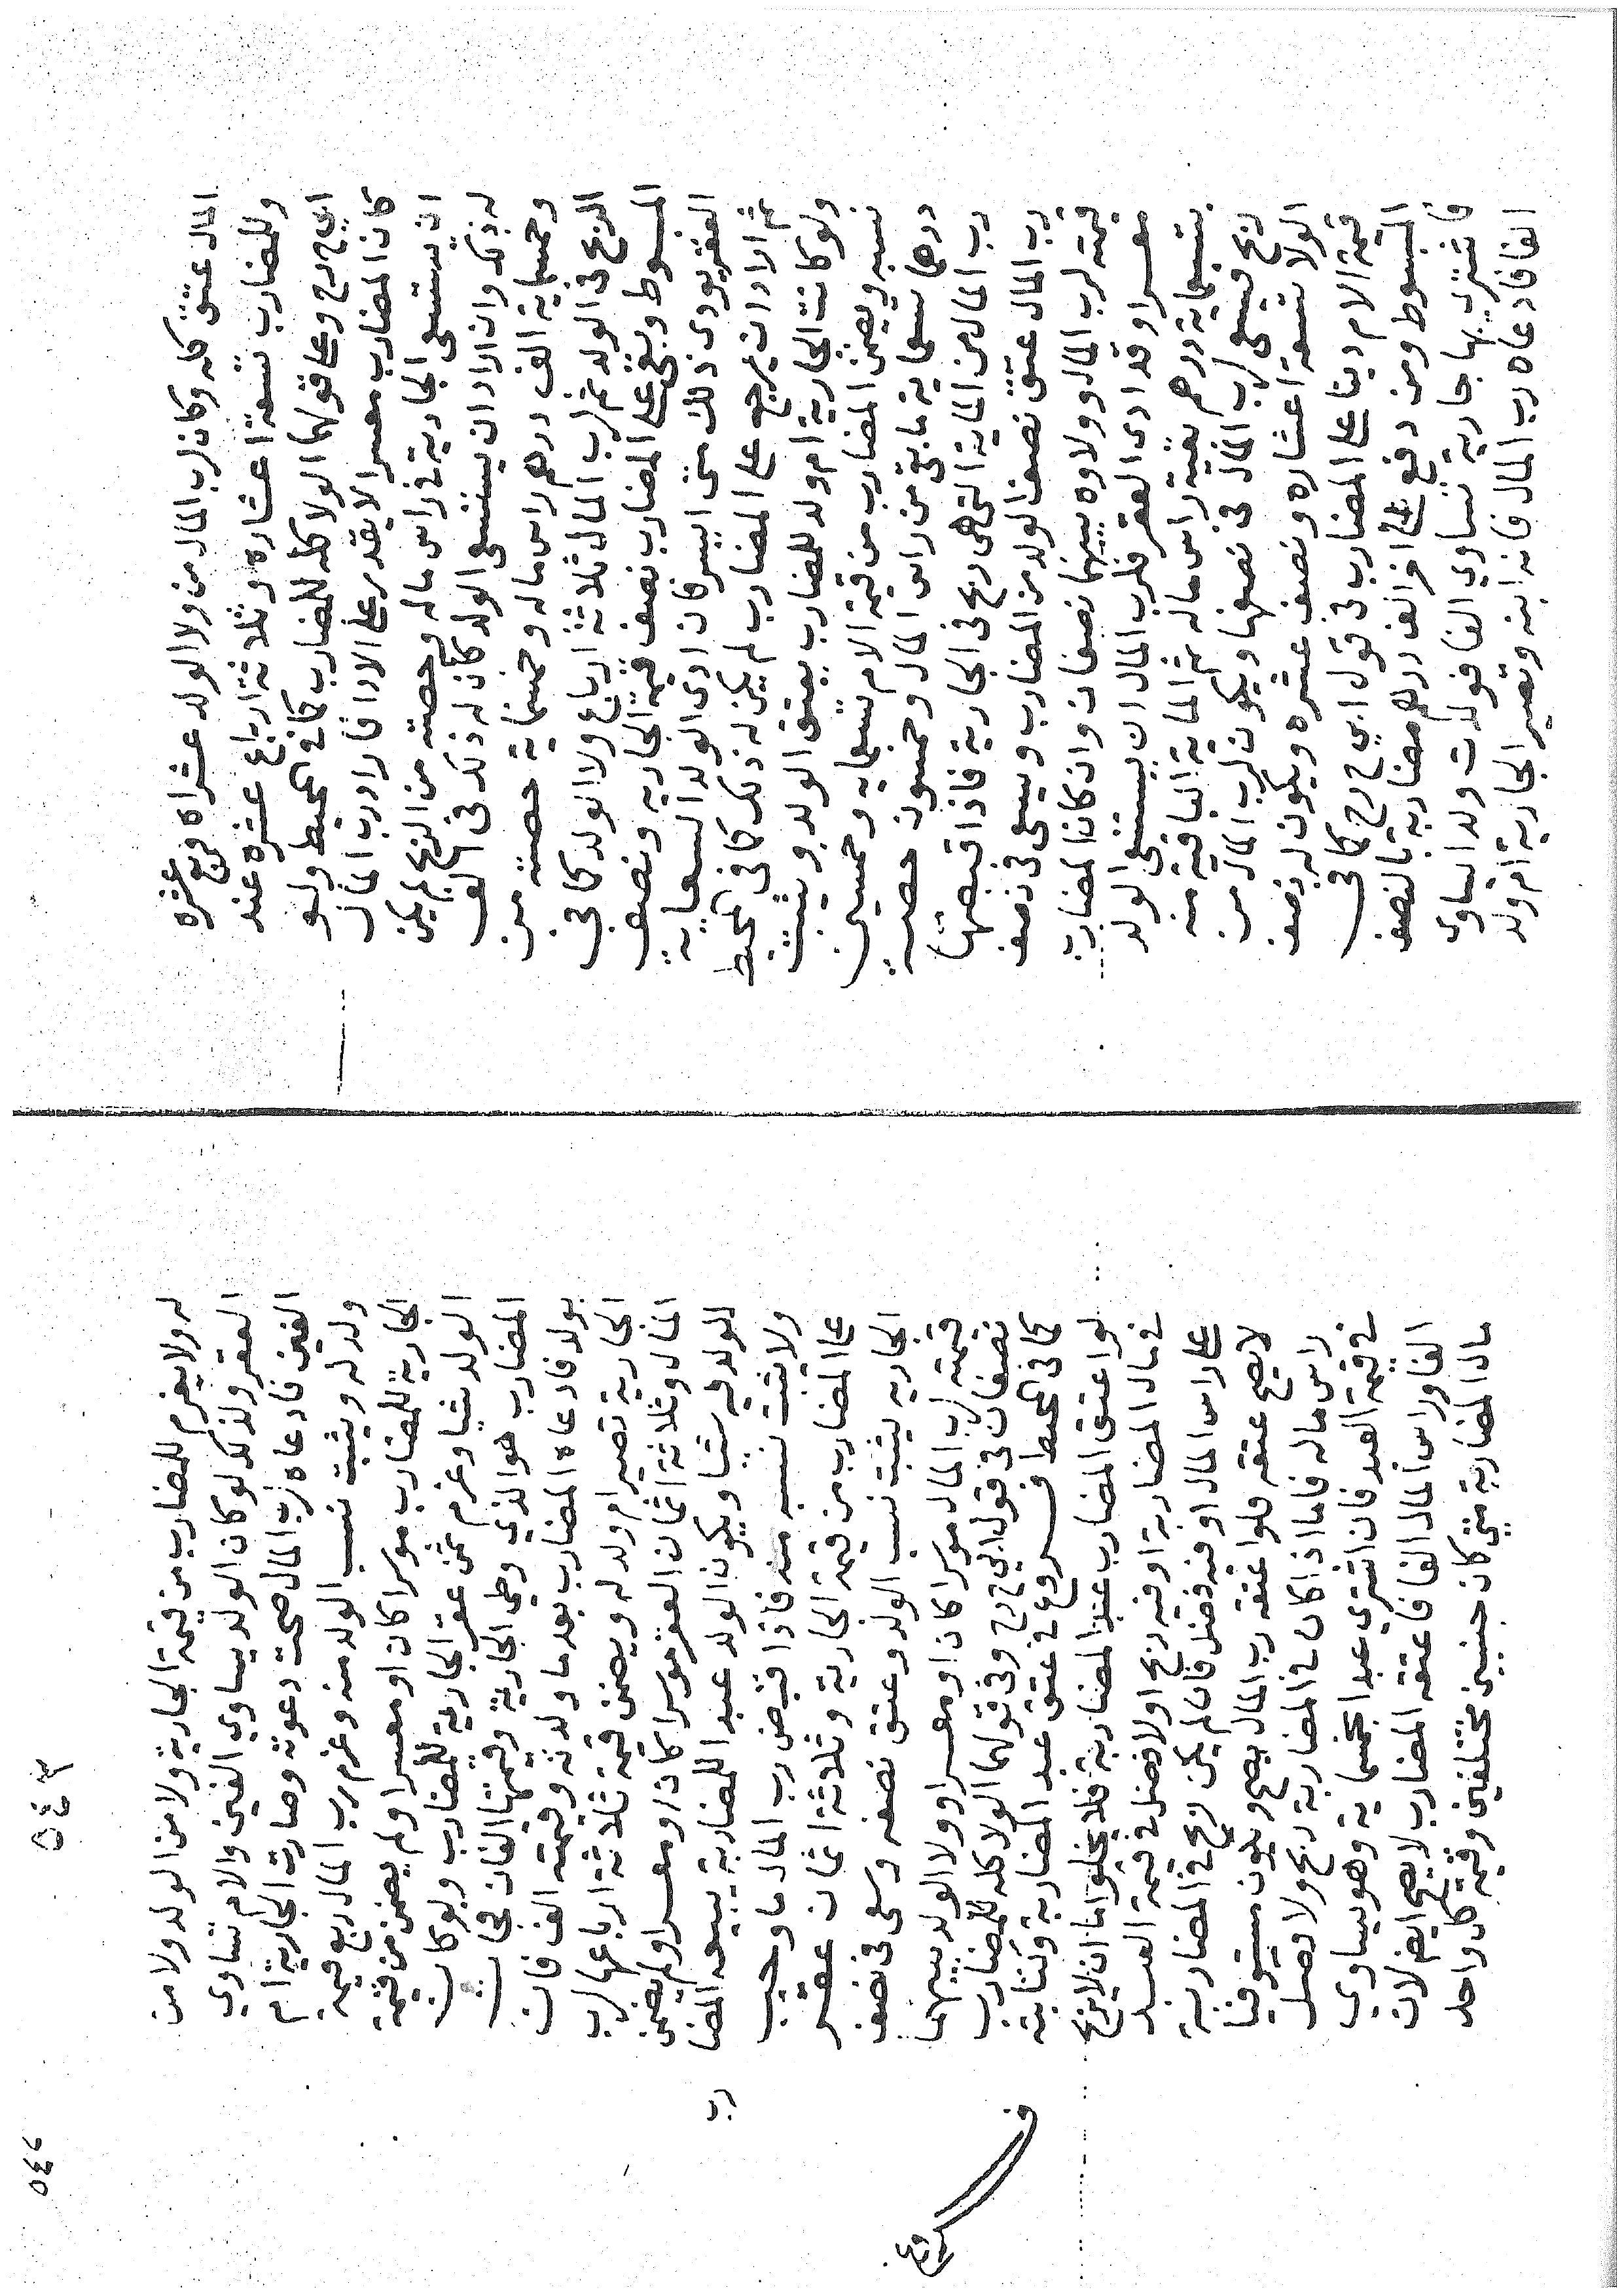 المال عتق كله وكان لرب المال من ولا الولد عشراه وربع عشره
وللمضارب تسعة اعشاره وثلاثة ارباع عشره عند
ابي ح رح وعلى قولهما الولا كله للمضارب كما في المحيط ولو
كان المضارب معسرا لا يقدر على الادا فاراد رب المال
ان يستسعى الجارية في راس ماله وحصته من الربح لم يكن
له ذلك وان اراد ان يستسعى الولد كان له ذلك في الف
وخمسماية الف درهم راس ماله وخمسماية حصته من
الربح في الولد ثم لرب المال ثلاثة ارباع ولا الولد كما في
المبسوط وبقى على المضارب نصف قيمة الجاريه ونصف
العقر يودى ذلك متى ايسر فان ادى الولد السعايه
ثم الاد ان يرجع على المضارب لم يكن له ذلك كما في المحيط
ولو كانت الجارية ام ولد للمضارب يعتق الولد ويثبت
نسبه ويضمن المضارب من قيمة الام تسعمايه وخمسين
درهما سعماية ما بقى من راس المال وخمسون حصة
رب المال من الماية التي هي ربح في الجارية فاذا قبضها
رب المال عتق نصف الولد من المضارب ويسعى في نصف
قيمته لرب المال وولاوه بينهما نصفان وان كان المضارب
معسرا وقد ادى العقر فلرب المال ان يستسعى الولد
بتسعماية درهم بقية راس ماله ثم الماية الباقية منه
ربح فيسعى لرب المال في نصفها ويكون لرب المال من
الولا تسعة اعشاره ونصف عشره ويكون له نصف
قيمة الام دينا على المضارب في قول ابي ح رح كما في
المبسوط ومن دفع الى اخر الف درهم مضاربة بالنصف
فاشترى بها جارية تساوي الفا فولدت ولدا يساوى
الفا فادعاه رب المال فانه ابنه وتصير الجارية ام ولد
٥٤٣
٥٤٢
له ولا يغرم للمضارب من قيمة الجارية ولا من الولد ولا من
العقر ولذلك لو كان الولد يساوي الفين والام تساوي
الفين فادعاه رب المال صحت دعوته وصارت الجارية ام
ولد له ويثبت نسب الولد منه وغرم رب المال ربع قيمة
الجارية للمضارب موسرا كان او معسرا ولم يضمن من قيمة
الولد شيا وغرم ثمن عقر الجارية للمضارب ولو كان
المضارب هو الذي وطى الجارية وقيمتها الفان فجات
بولد فادعاه المضارب بعد ما ولدته وقيمته الف فان
الجارية تصير ام ولد له ويضمن قيمة ثلاثة ارباعها لرب
المال وثلاثة اثمان العقر موسرا كان او معسرا ولم يضمن
الولد فيه شيا ويكون الولد عبدا للمضاربة يبيعه المضا
رب
ولا يثبت نسبه منه فاذا قبض رب المال ما وجب
على المضارب من قيمة الجارية وثلاثة اثمان عقر
الجاريه يثبت نسب الولد وعتق نصفه وسعى في نصف
قيمته لرب المال موسرا كان او معسرا وولا الولد بينهما
نصفان في قول ابي ح رح وفي قولهما الولا كله للمضارب
كما في المحيط فروع في عتق عبد المضاربة وكتابته
فروع
لو اعتق المضارب عبد المضاربة فلا يخلوا اما ان لا ربح
في مال المضاربة او فيه ربح اولا فضل في قيمة العبد
على راس المال او فيه فضل فان لم يكن ربح في المضاربة
لا يصح عتقه فلو اعتقه رب المال يصح ويكون مستوفيا
راس ماله فاما اذا كان في المضاربة ربح ولا فضل
في قيمة العبد فان اشترى عبدا بخمسماية وهو يساوي
الفا وراس المال الفا فاعتقه المضارب لا يصح ايضا لان
مال المضاربة متى كان جنسين مختلفين وقيمة كل واحد